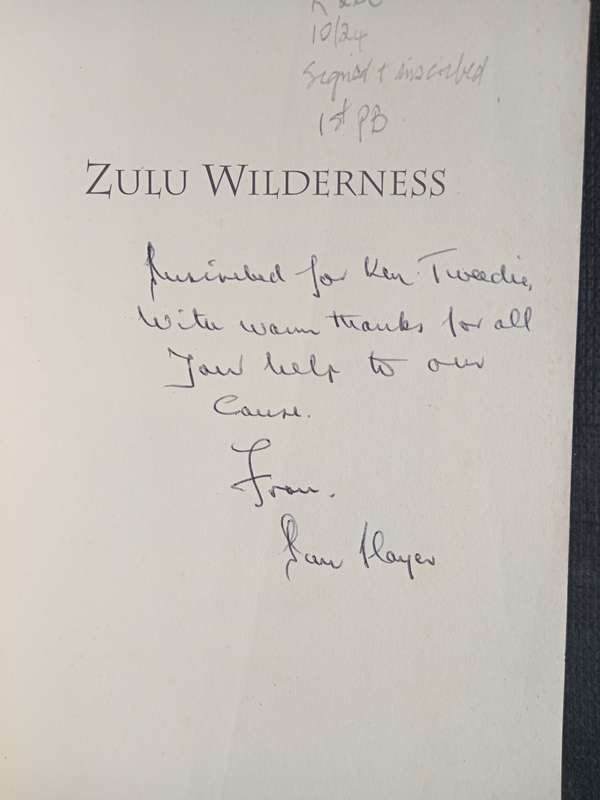 10/24
Signed + inscribed
1st PB
ZULU WILDERNESS
Inscribed for Ken Tweedie,
With warm thanks for all
Your help to our
Cause.
From.
Ian Player